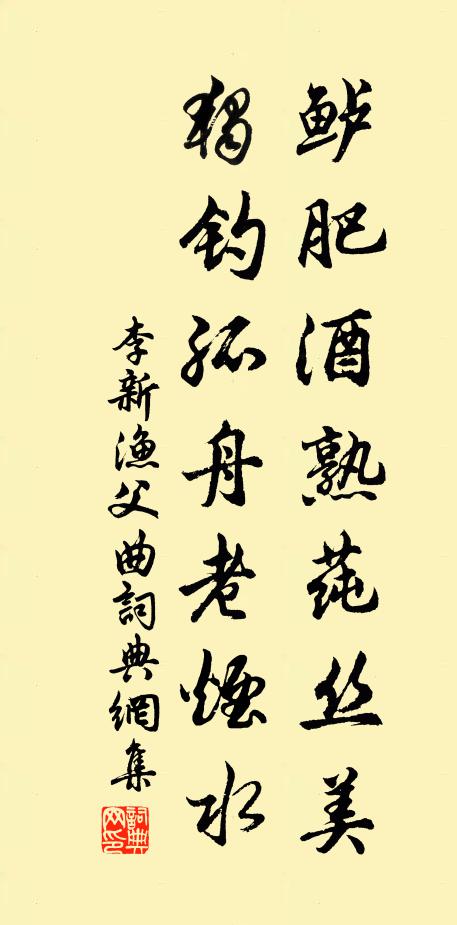 鲈肥酒熟莼丝美
独钓孤舟老烟水
李新漁父曲詞典網集
詞典網印